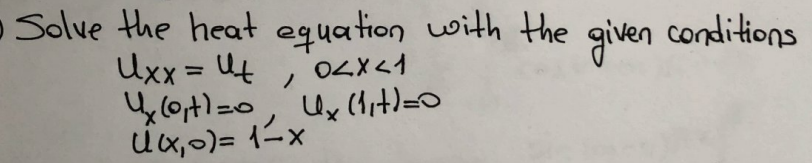 ) Solve the heat equation with the given conditions
Uxx = Ut , 0<x<1
Ux(0,t)=0, Ux(1,t)=0
U(x,0)= 1-x